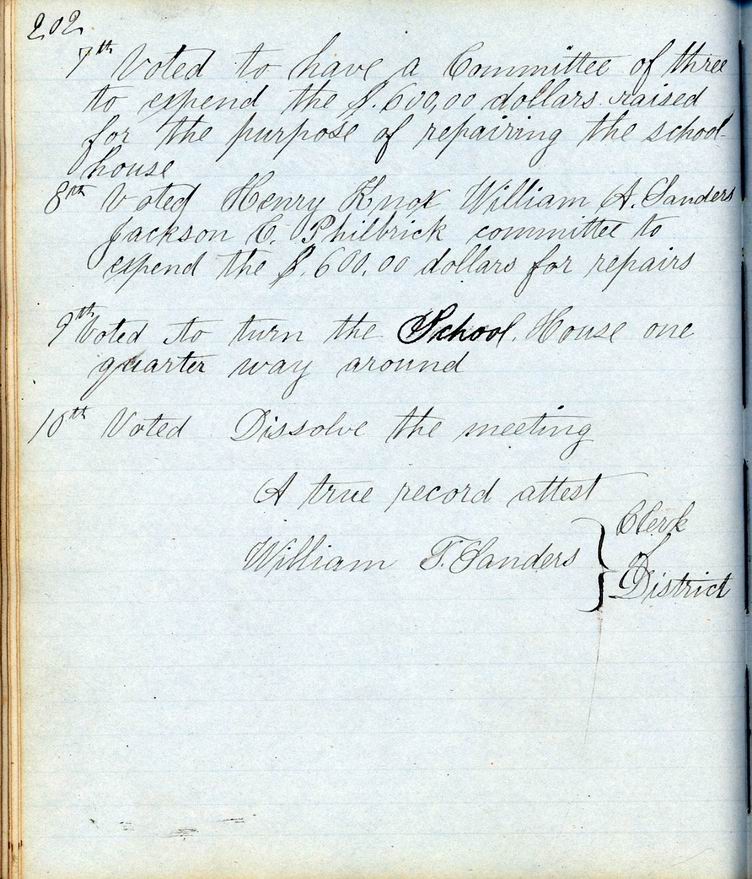 202
7th Voted to have a Committee of three
to expend the $.600,00 dollars raised
for the purpose of repairing the school
house
8th Voted Henry Knox William A. Sanders
Jackson C. Philbrick committee to
expend the $.600,00 dollars for repairs
9th Voted to turn the School. House one
quarter way around
10th Voted Dissolve the meeting
A true record attest
William T. Sanders } Clerk
of
District